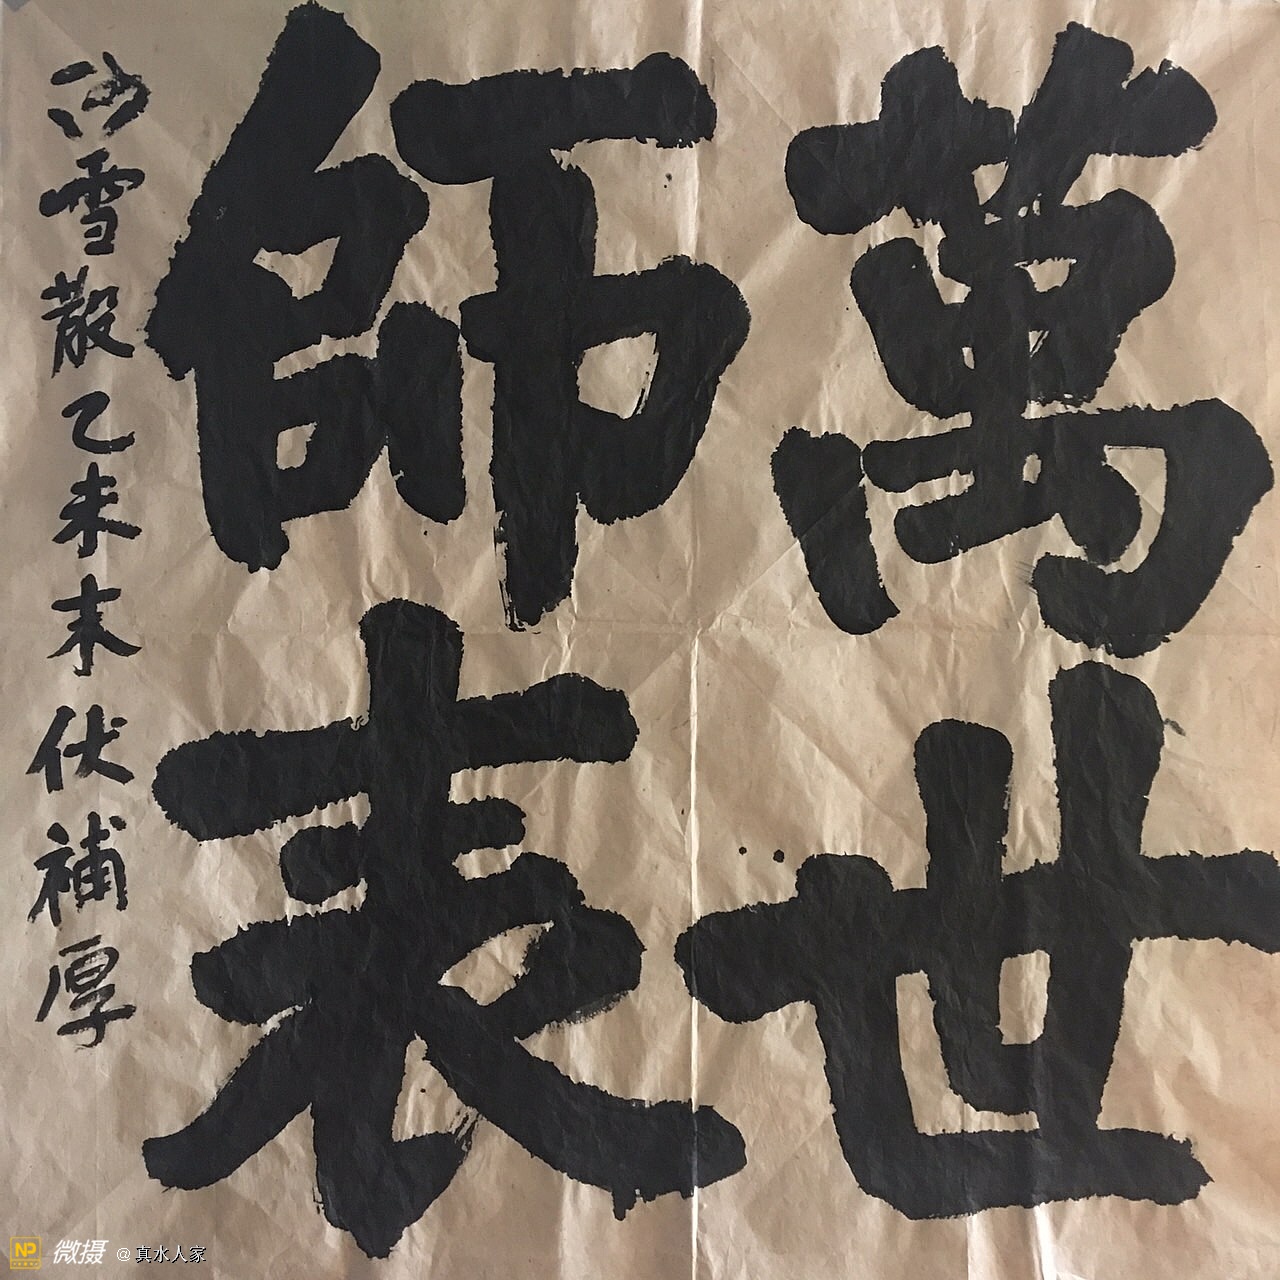 萬世
師表
雪散乙未末伏補厚
NP 微摄 @真水人家